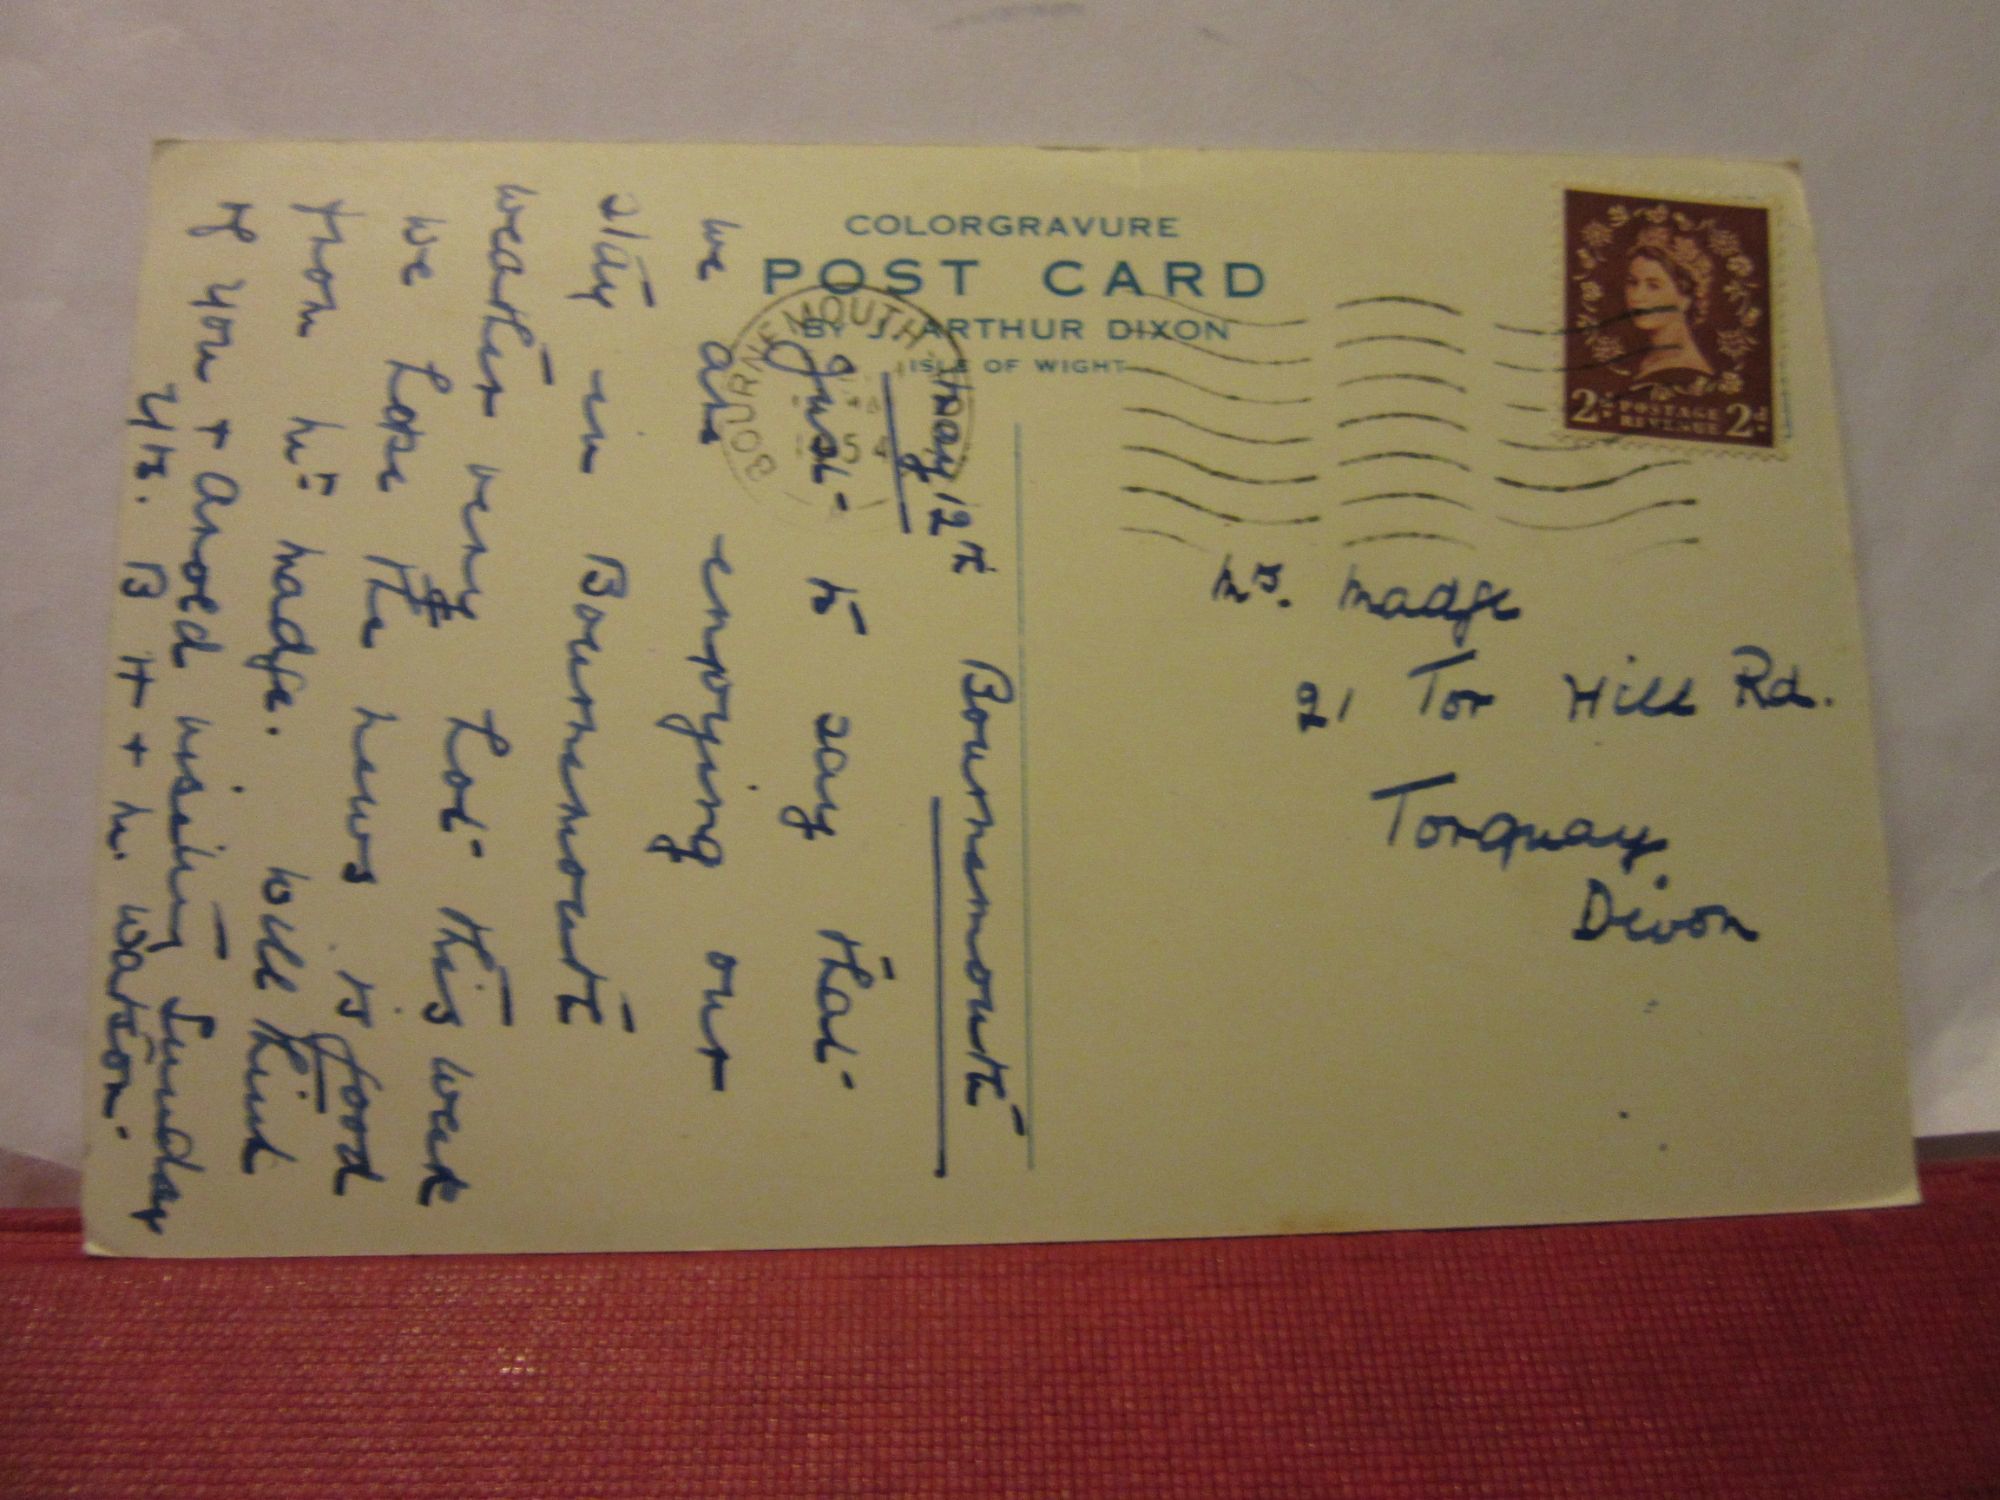 COLORGRAVURE
POST CARD
BY J. ARTHUR DIXON
ISLE OF WIGHT
BOURNEMOUTH
1954
2d POSTAGE 2d
REVENUE
Mrs. Madge
21 Tor Hill Rd.
Torquay.
Devon
Bournemouth
May 12th
Just to say that
we are enjoying our
stay in Bournemouth
weather very hot this week
We hope the news is good
from Mr Madge. Will think
of you & Arnold visiting Sunday
Yrs. B H & M. Watson.